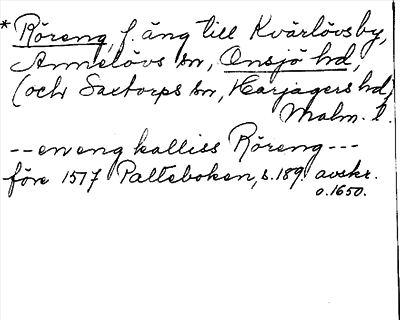 * Röreng, f. äng till Kvärlövsby,
Annelövs sn, Onsjö hd,
(och Saxtorps sn, Harjagers hd)
Malm. l.
-- en eng kalliss Röreng ---
före 1517 Palteboken, s. 189. avskr.
o. 1650.